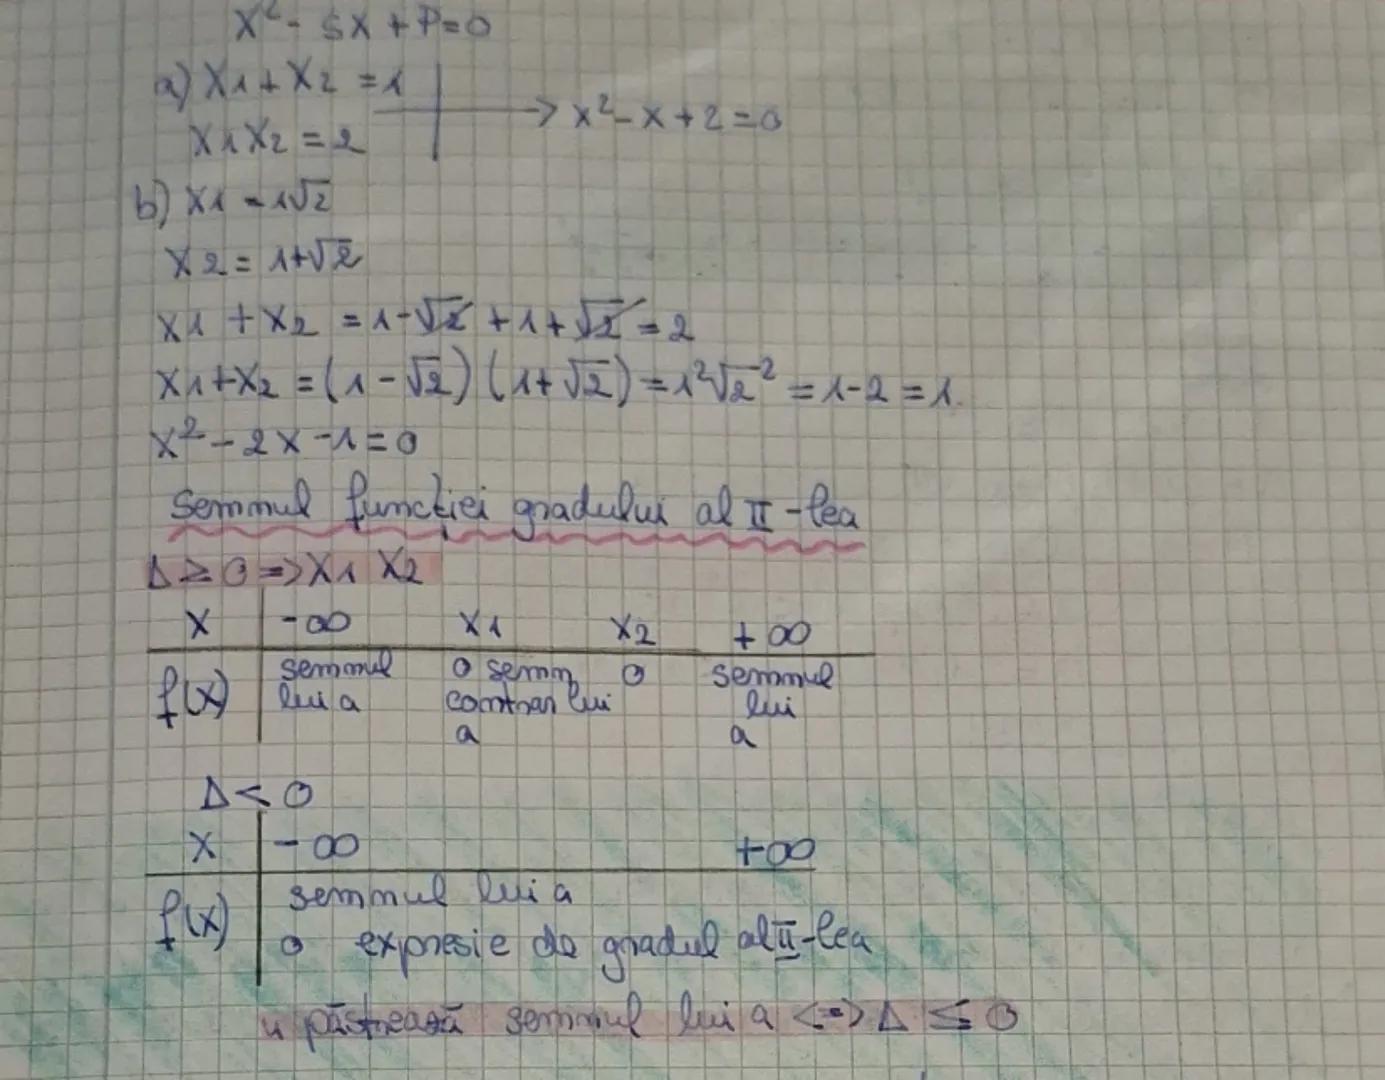 x² - Sx + P = 0
a) x1 + x2 = 1
→ x² - x + 2 = 0
x1 x2 = 2
b) x1 = 1√2
x2 = 1+√2
x1 + x2 = 1 - √2 + 1 + √2 = 2
x1 + x2 = (1 - √2) (1 + √2) = 1² √2⁻² = 1 - 2 = 1.
x² - 2x - 1 = 0
Semnul funcției gradului al II-lea
Δ ≥ 0 => x1 x2
x -∞ x1 x2 +∞
f(x) semnul lui a 0 semn contrar lui a 0 semnul lui a
Δ < 0
x -∞ +∞
f(x) semnul lui a
o expresie de gradul al II-lea
păstrează semnul lui a <=> Δ ≤ 0